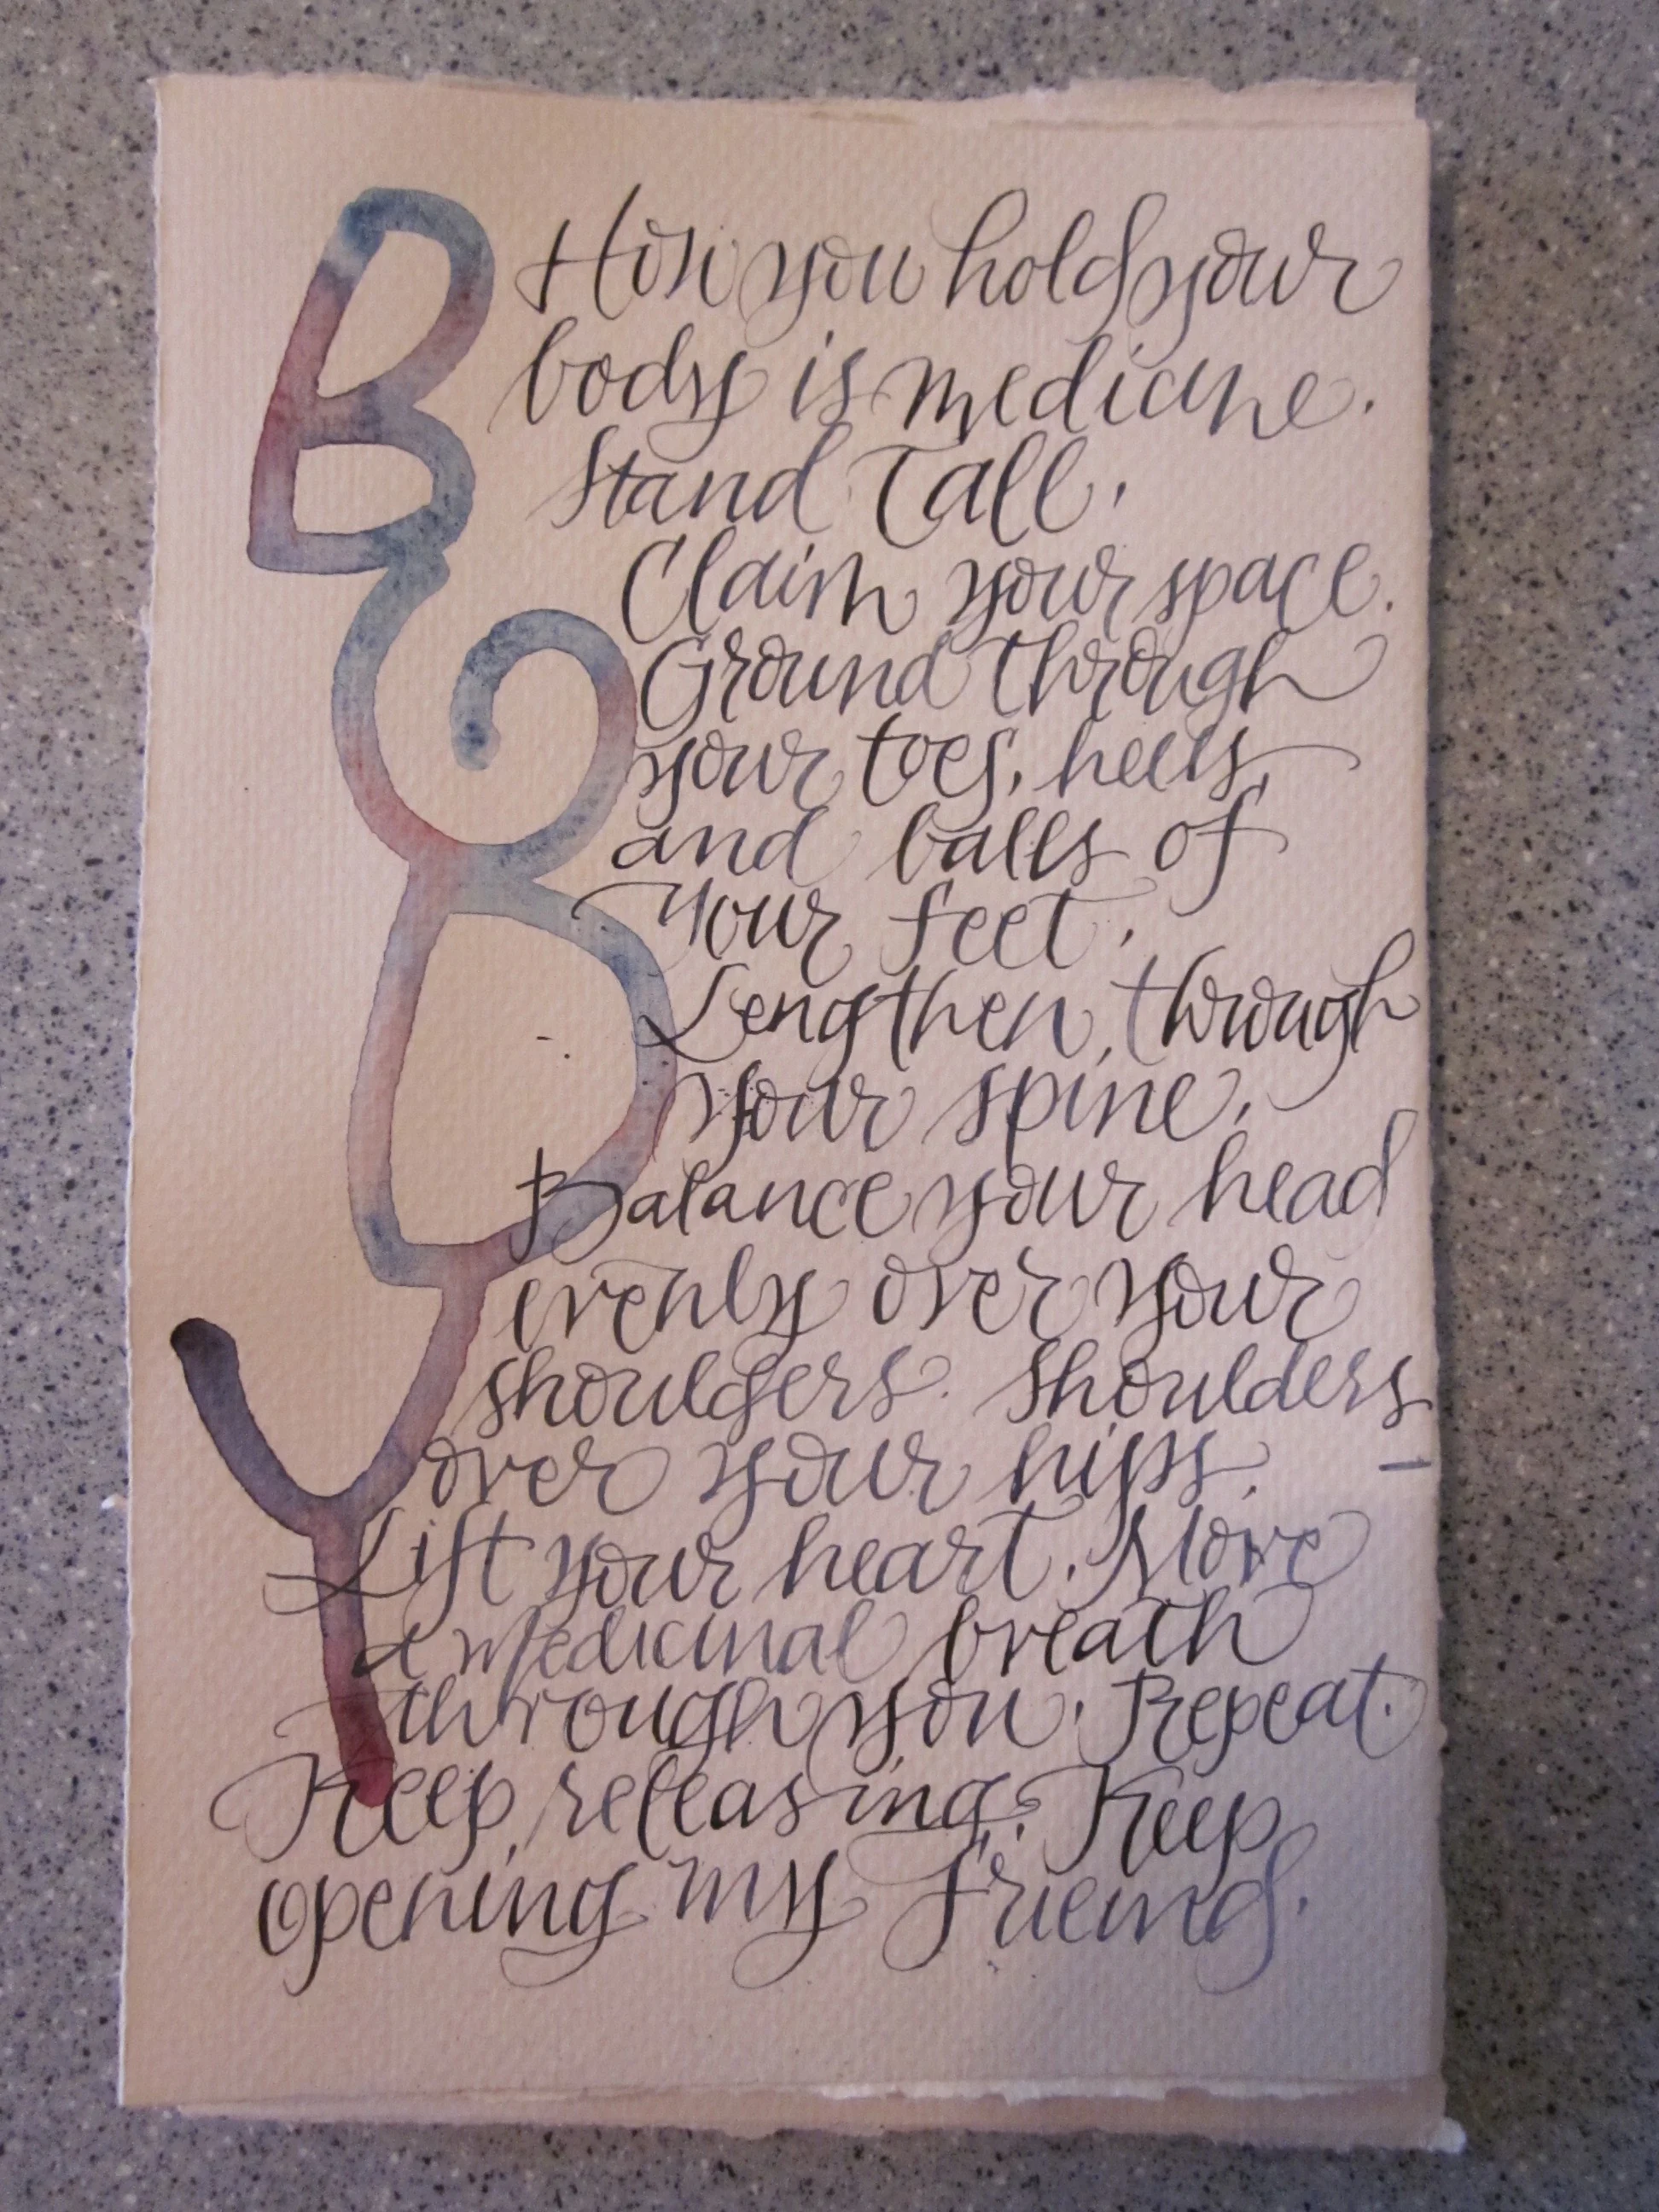 BODY
How you hold your
body is medicine.
Stand Tall.
Claim your space.
Ground through
your toes, heels,
and balls of
your feet.
Lengthen through
your spine.
Balance your head
evenly over your
shoulders. Shoulders
over your hips.
Lift your heart. Move
a medicinal breath
through you. Repeat.
Keep releasing. Keep
opening my friend.